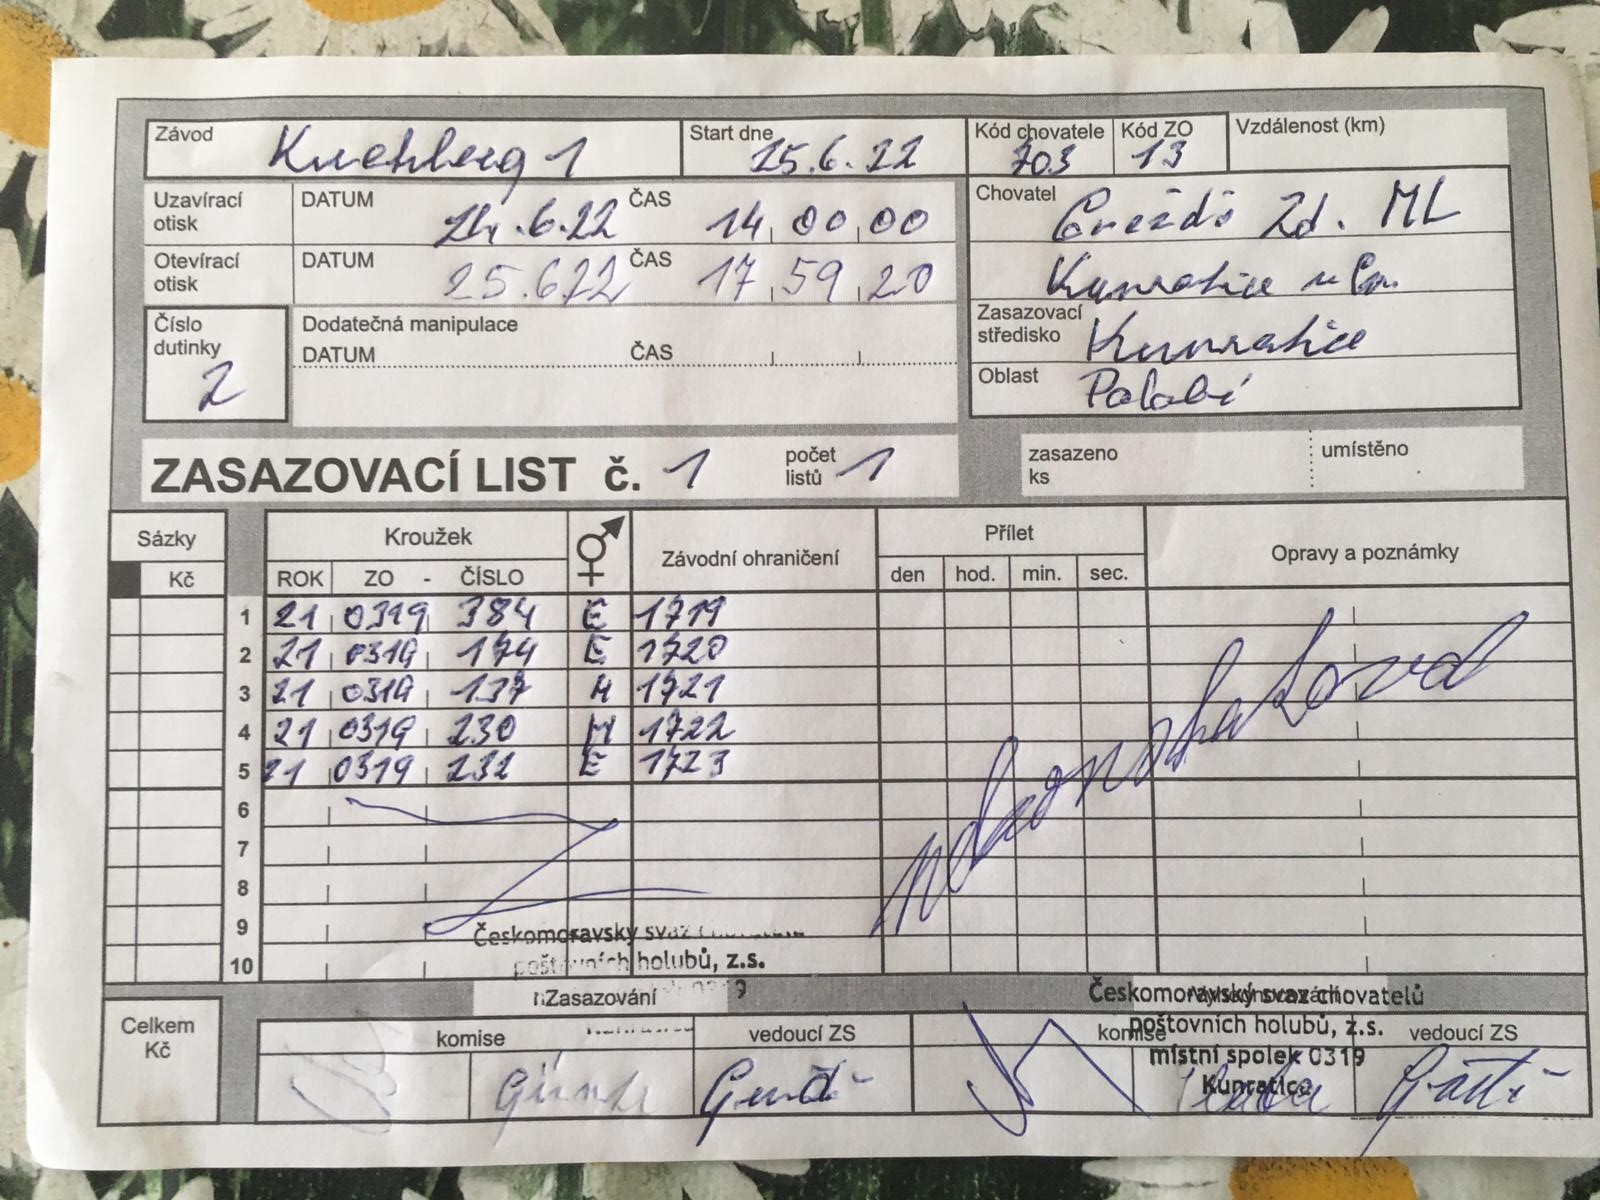 Závod Kuehberg 1 Start dne 25.6.22 Kód chovatele 703 Kód ZO 13 Vzdálenost (km)
Uzavírací otisk DATUM 24.6.22 ČAS 14 00 00
Chovatel Gvěždě Zd. ML
Otevírací otisk DATUM 25.622 ČAS 17 59 20
Kunratice u Cv.
Číslo dutinky 2
Dodatečná manipulace
DATUM ČAS
Zasazovací středisko Kunratice
Oblast Polabí
ZASAZOVACÍ LIST č. 1 počet listů 1 zasazeno ks umístěno
Sázky Kroužek Závodní ohraničení Přílet Opravy a poznámky
Kč ROK ZO - ČÍSLO den hod. min. sec.
1 21 0319 384 E 1719
2 21 0319 174 E 1720
3 21 0319 137 H 1721
4 21 0319 230 H 1722
5 21 0319 232 E 1723
6
7
8
9
10
nekonstatoval
Českomoravský svaz
poštovních holubů, z.s.
Českomoravský svaz chovatelů
poštovních holubů, z.s.
místní spolek 0319
Kunratice
Celkem Kč
Zasazování
komise vedoucí ZS komise vedoucí ZS